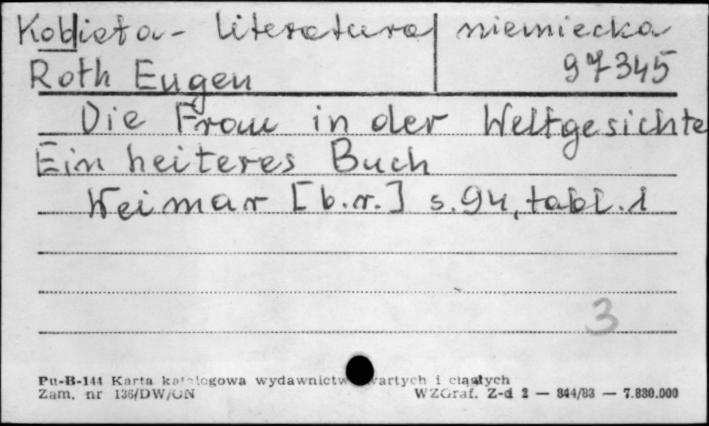 Kobieta - literatura niemiecka
Roth Eugen 97345
Die Frau in der Weltgesichte
Ein heiteres Buch
Weimar [b.r.] s.94, tabl.1
3
Pu-B-144 Karta katalogowa wydawnictw zwartych i ciągłych
Zam. nr 136/DW/ON WZGraf. Z-d 2 — 844/83 — 7.830.000